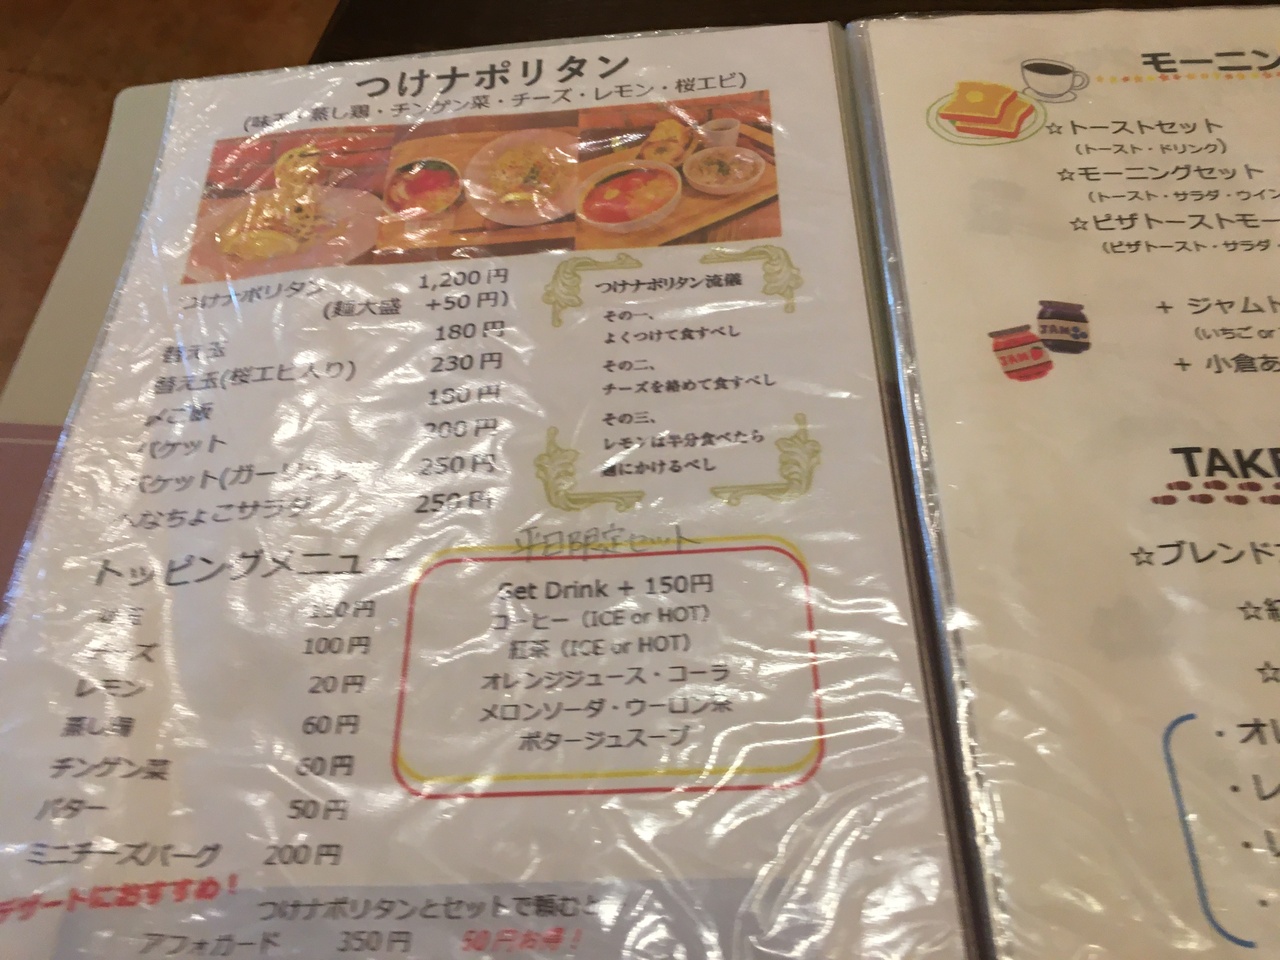 つけナポリタン
(味玉・蒸し鶏・チンゲン菜・チーズ・レモン・桜エビ)
つけナポリタン 1,200円
(麺大盛 +50円)
替え玉 180円
替え玉(桜エビ入り) 230円
〆ご飯 180円
バケット 200円
バケット(ガーリック 250円
へなちょこサラダ 250円
つけナポリタン流儀
その一、
よくつけて食すべし
その二、
チーズを絡めて食すべし
その三、
レモンは半分食べたら
麺にかけるべし
トッピングメニュー
チーズ 100円
レモン 20円
蒸し鶏 60円
チンゲン菜 60円
バター 50円
ミニチーズバーグ 200円
平日限定セット
Get Drink + 150円
コーヒー (ICE or HOT)
紅茶 (ICE or HOT)
オレンジジュース・コーラ
メロンソーダ・ウーロン茶
ポタージュスープ
デザートにおすすめ!
つけナポリタンとセットで頼むと
アフォガード 350円 50円お得!
モーニン
☆トーストセット
(トースト・ドリンク)
☆モーニングセット
(トースト・サラダ・ウイン
☆ピザトーストモー
(ピザトースト・サラダ・
JAM
JAM
+ ジャムト
(いちご or
+ 小倉あ
TAKE
☆ブレンド